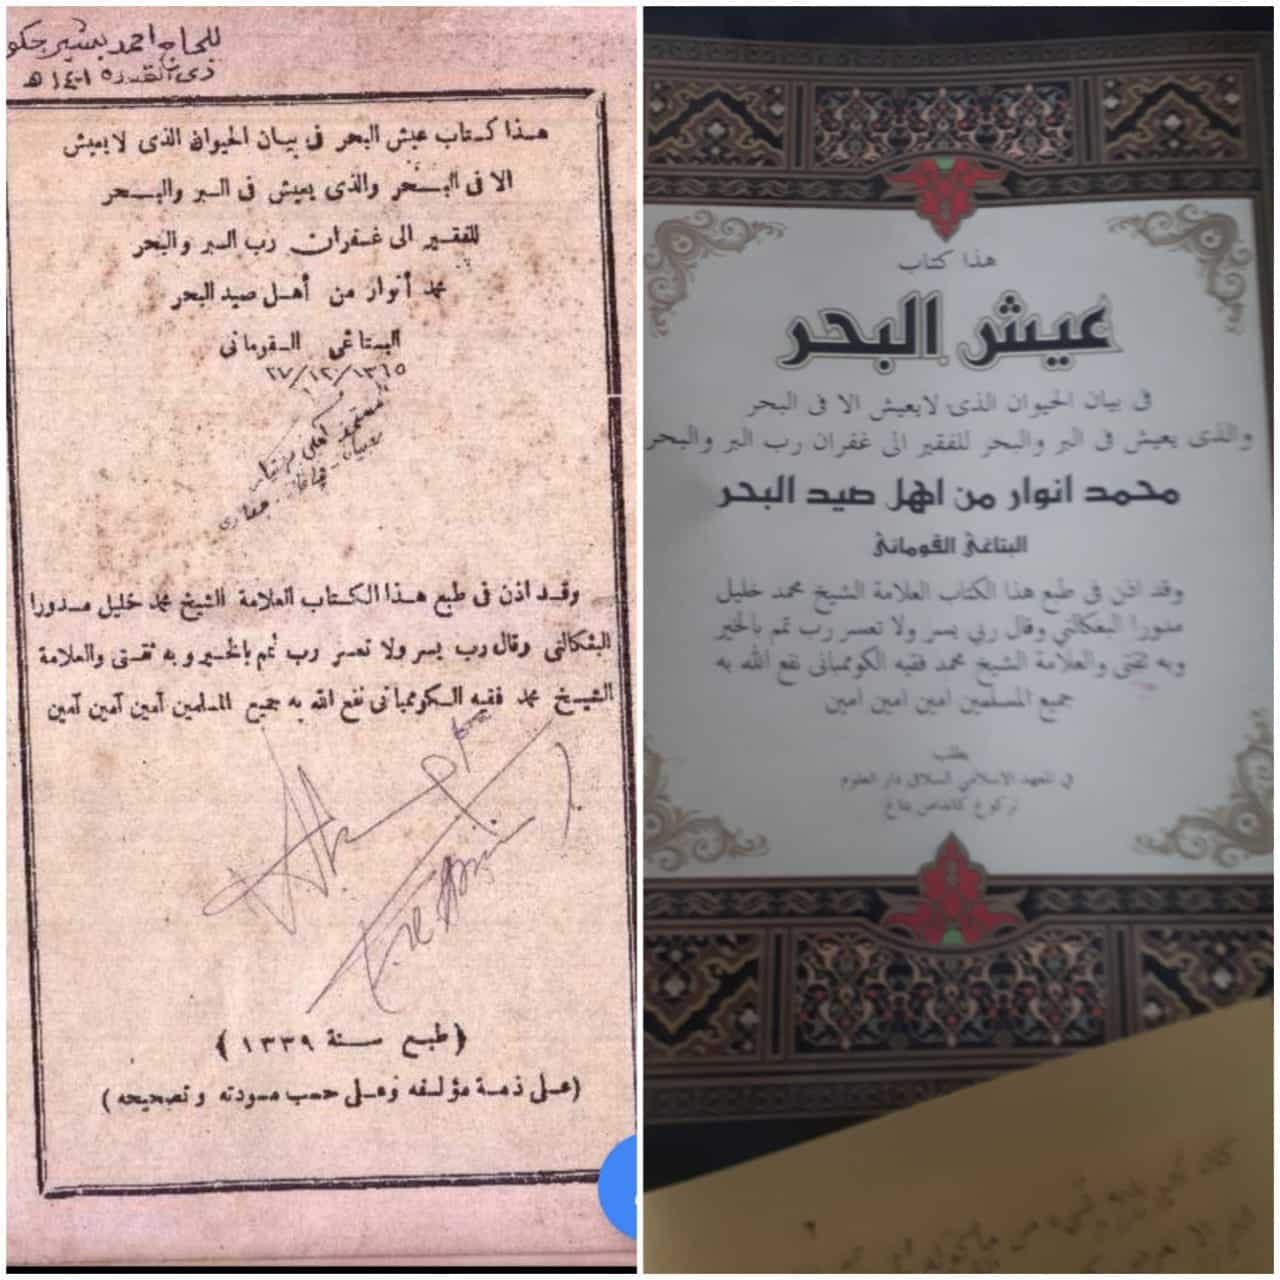 للحاج احمد بشير جكو
ذى القعدة ١٤٠١ ھ
هذا كتاب عيش البحر فى بيان الحيوان الذى لا يعيش
الا فى البحر والذى يعيش فى البر والبحر
للفقير الى غفران رب البر والبحر
محمد أنوار من أهل صيد البحر
البتاغى القومانى
٢٧/١٢/١٣٦٥
وقد اذن فى طبع هذا الكتاب العلامة الشيخ محمد خليل مدورا
البغكالنى وقال رب يسر ولا تعسر رب تمم بالخير وبه ثقتى والعلامة
الشيخ محمد فقيه الكومبانى نفع الله به جميع المسلمين آمين آمين آمين
(طبع سنة ١٣٣٩)
(على ذمة مؤلفه وعلى حسب مسودته وتصحيحه)
هذا كتاب
عيش البحر
فى بيان الحيوان الذى لايعيش الا فى البحر
والذى يعيش فى البر والبحر للفقير الى غفران رب البر والبحر
محمد انوار من اهل صيد البحر
البتاغى القومانى
وقد اذن فى طبع هذا الكتاب العلامة الشيخ محمد خليل
مدورا البغكالنى وقال ربي يسر ولا تعسر رب تمم بالخير
وبه ثقتى والعلامة الشيخ محمد فقيه الكومبانى نفع الله به
جميع المسلمين امين امين امين
يطلب
في المعهد الاسلامي السلاق دار العلوم